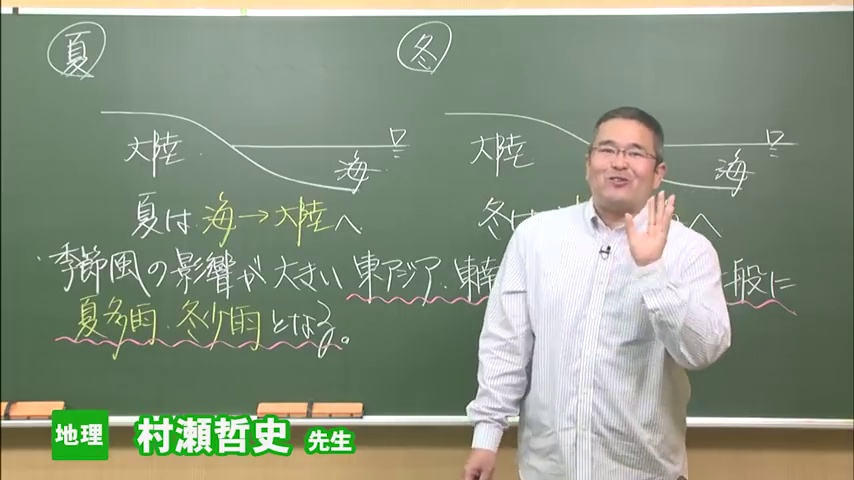 夏
冬
大陸
海
大陸
海
夏は 海→大陸へ
冬は へ
季節風の影響が 大きい 東アジア・東南 一般に
夏多雨、冬少雨となる。
地理 村瀬哲史 先生